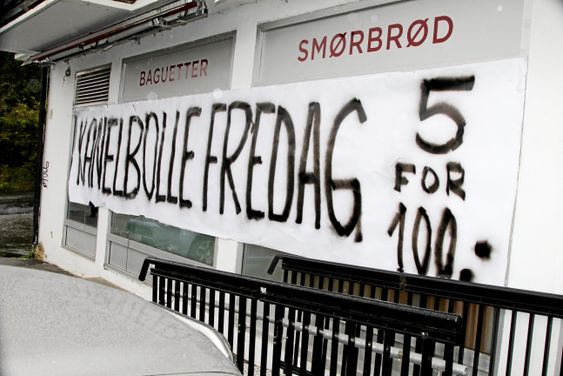 BAGUETTER
SMØRBRØD
KANELBOLLE FREDAG
5
FOR
100.-